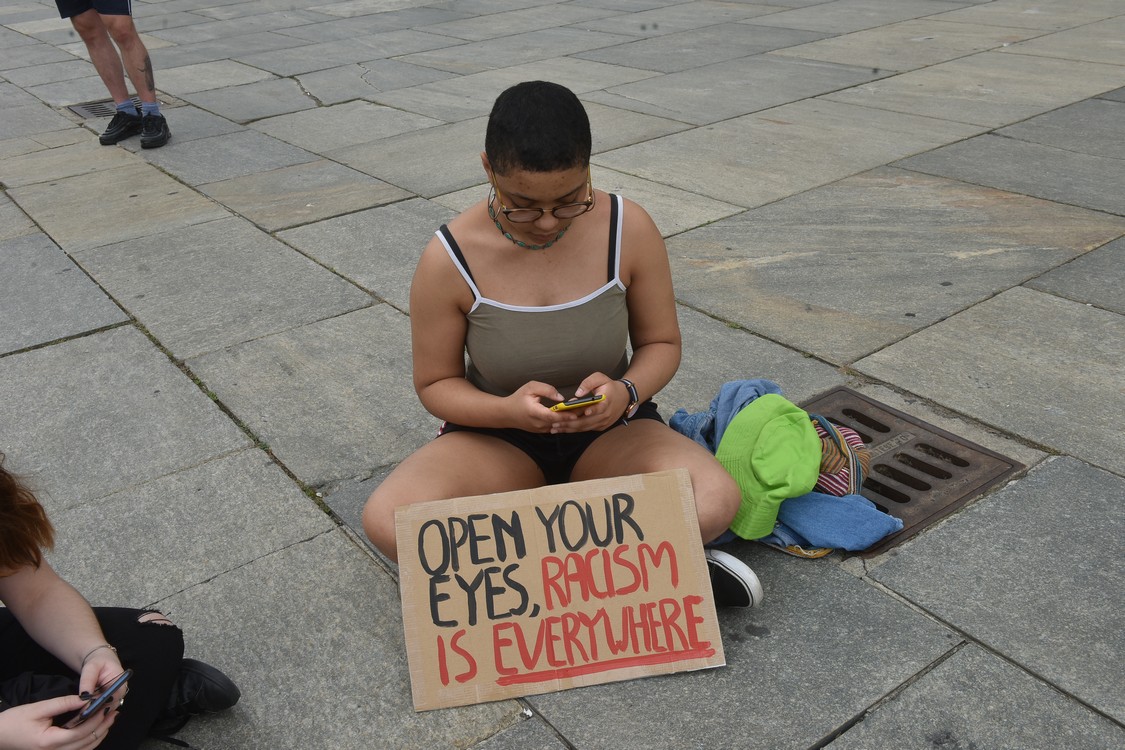 OPEN YOUR
EYES, RACISM
IS EVERYWHERE